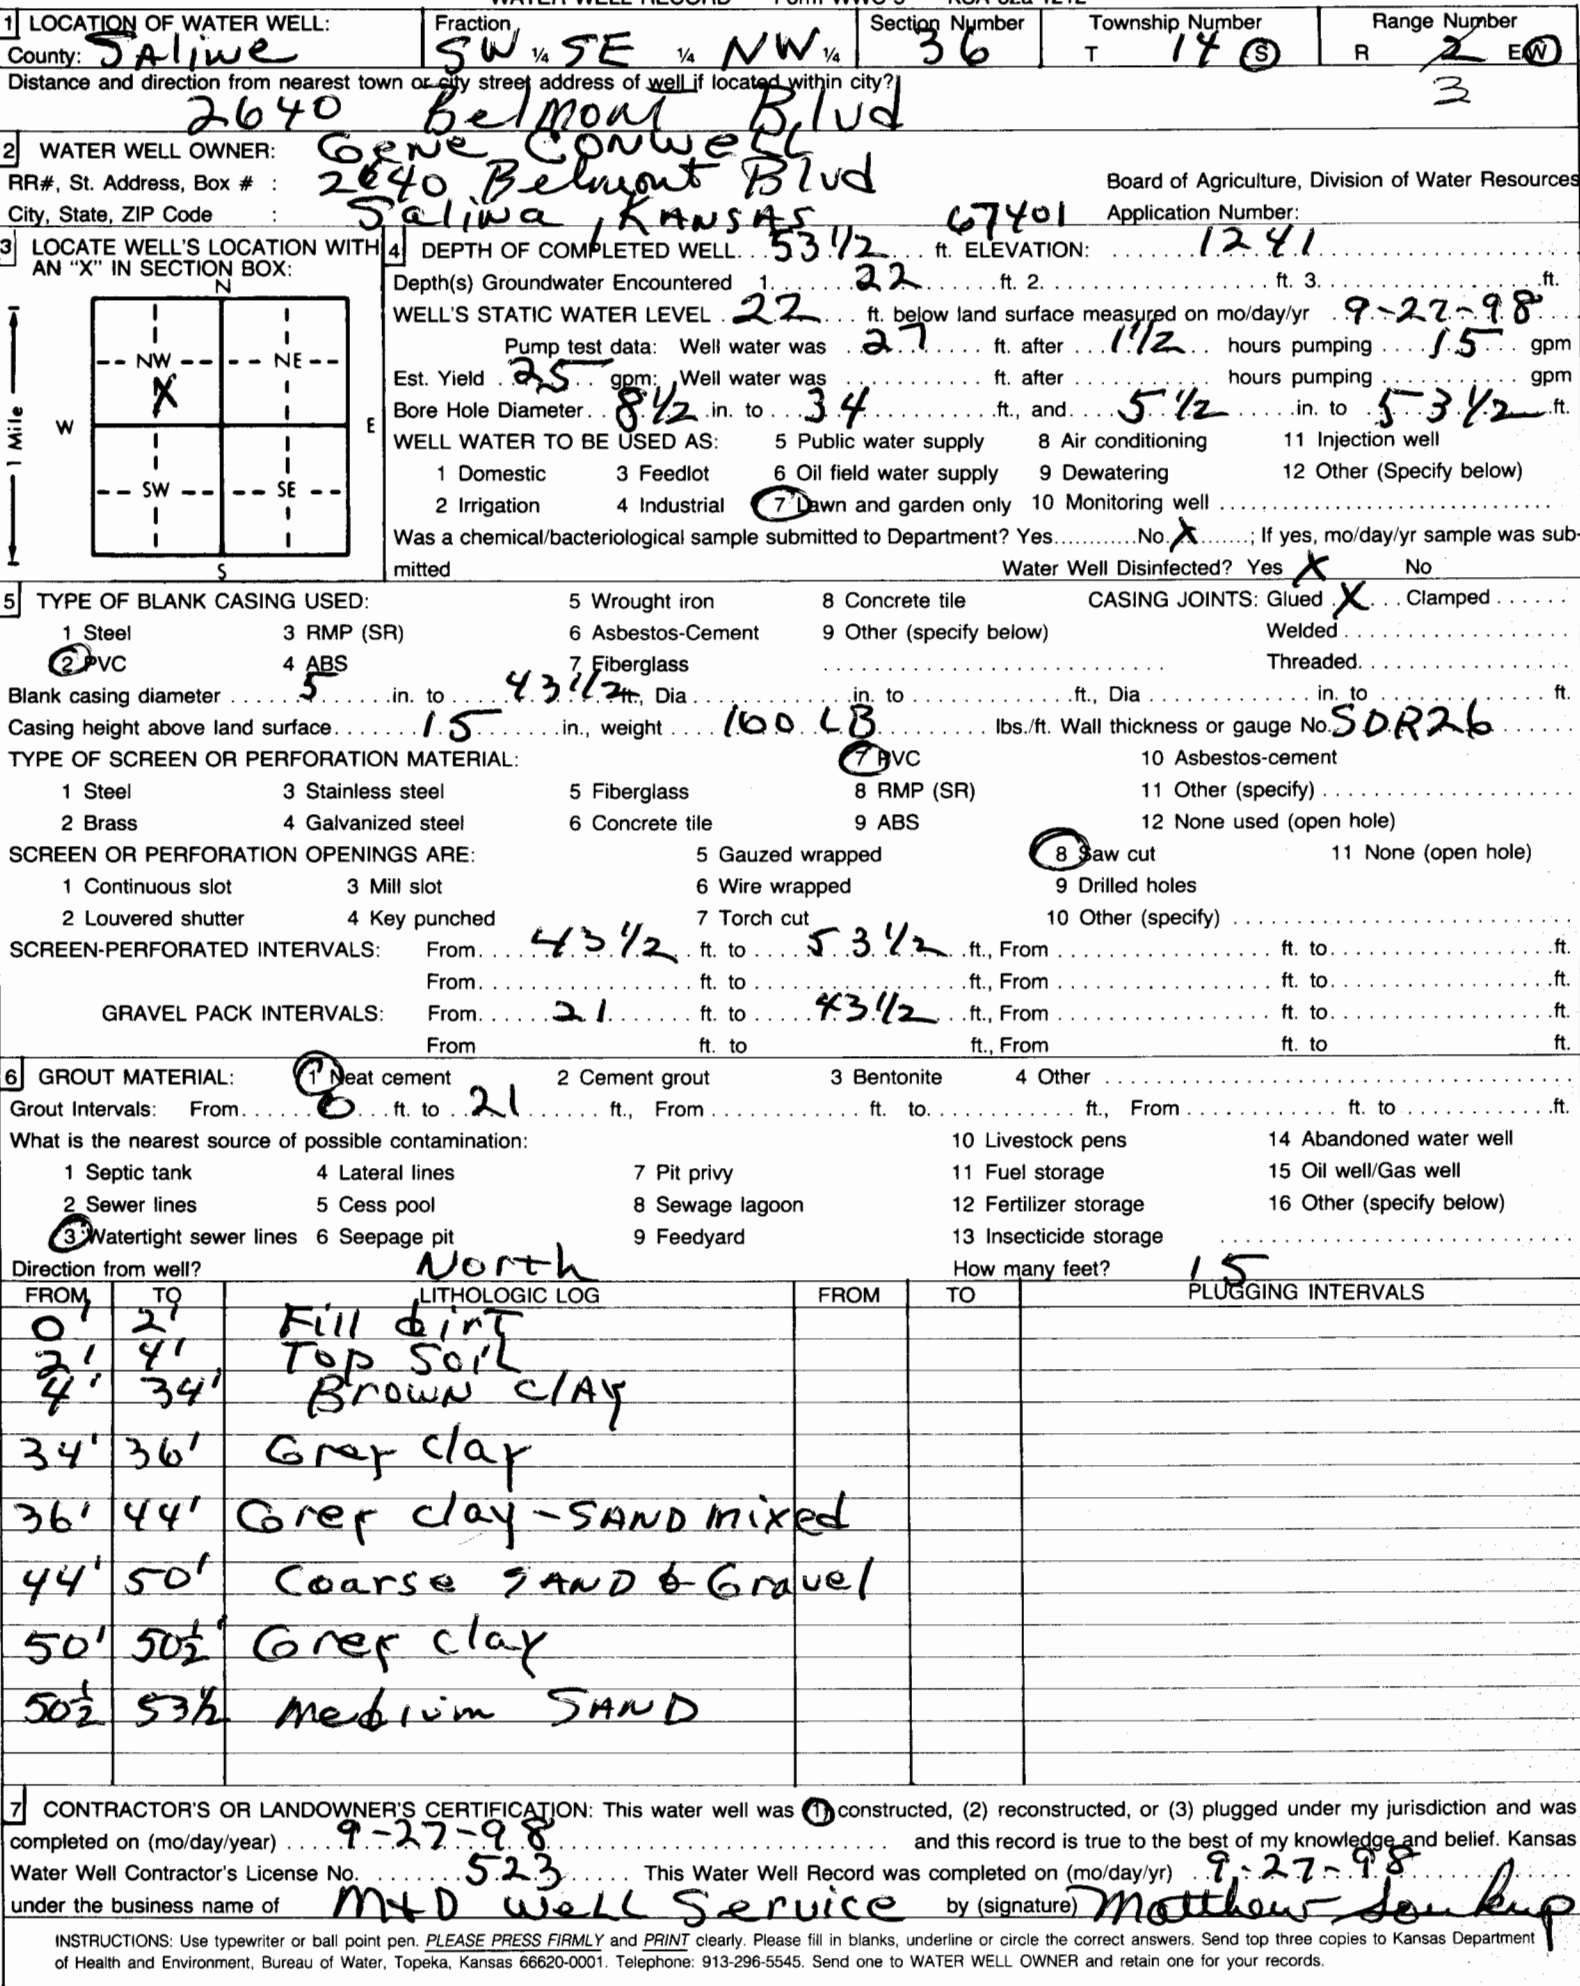 WATER WELL RECORD Form WWC-5 KSA 82a-1212
1 LOCATION OF WATER WELL: Fraction Section Number Township Number Range Number
County: SALiNe SW ¼ SE ¼ NW ¼ 36 T 14 S R 2 E W
3
Distance and direction from nearest town or city street address of well if located within city?
2640 Belmont Blvd
2 WATER WELL OWNER: Gene CONWELL
RR#, St. Address, Box # : 2640 Belmont Blvd Board of Agriculture, Division of Water Resources
City, State, ZIP Code : SaliNa, KANSAS 67401 Application Number:
3 LOCATE WELL'S LOCATION WITH AN "X" IN SECTION BOX:
N
NW NE
X
W E
SW SE
S
1 Mile
4 DEPTH OF COMPLETED WELL. 53 1/2 ft. ELEVATION: 1241
Depth(s) Groundwater Encountered 1. 22 ft. 2. ft. 3. ft.
WELL'S STATIC WATER LEVEL 22 ft. below land surface measured on mo/day/yr 9-27-98
Pump test data: Well water was 27 ft. after 1 1/2 hours pumping 15 gpm
Est. Yield 25 gpm: Well water was ft. after hours pumping gpm
Bore Hole Diameter 8 1/2 in. to 34 ft., and 5 1/2 in. to 53 1/2 ft.
WELL WATER TO BE USED AS: 5 Public water supply 8 Air conditioning 11 Injection well
1 Domestic 3 Feedlot 6 Oil field water supply 9 Dewatering 12 Other (Specify below)
2 Irrigation 4 Industrial 7 Lawn and garden only 10 Monitoring well
Was a chemical/bacteriological sample submitted to Department? Yes No X ; If yes, mo/day/yr sample was sub-
mitted Water Well Disinfected? Yes X No
5 TYPE OF BLANK CASING USED: 5 Wrought iron 8 Concrete tile CASING JOINTS: Glued X Clamped
1 Steel 3 RMP (SR) 6 Asbestos-Cement 9 Other (specify below) Welded
2 PVC 4 ABS 7 Fiberglass Threaded
Blank casing diameter 5 in. to 43 1/2 ft., Dia in. to ft., Dia in. to ft.
Casing height above land surface 15 in., weight 160 LB lbs./ft. Wall thickness or gauge No. SDR26
TYPE OF SCREEN OR PERFORATION MATERIAL: 7 PVC 10 Asbestos-cement
1 Steel 3 Stainless steel 5 Fiberglass 8 RMP (SR) 11 Other (specify)
2 Brass 4 Galvanized steel 6 Concrete tile 9 ABS 12 None used (open hole)
SCREEN OR PERFORATION OPENINGS ARE: 5 Gauzed wrapped 8 Saw cut 11 None (open hole)
1 Continuous slot 3 Mill slot 6 Wire wrapped 9 Drilled holes
2 Louvered shutter 4 Key punched 7 Torch cut 10 Other (specify)
SCREEN-PERFORATED INTERVALS: From 43 1/2 ft. to 53 1/2 ft., From ft. to ft.
From ft. to ft., From ft. to ft.
GRAVEL PACK INTERVALS: From 21 ft. to 43 1/2 ft., From ft. to ft.
From ft. to ft., From ft. to ft.
6 GROUT MATERIAL: 1 Neat cement 2 Cement grout 3 Bentonite 4 Other
Grout Intervals: From 0 ft. to 21 ft., From ft. to ft., From ft. to ft.
What is the nearest source of possible contamination: 10 Livestock pens 14 Abandoned water well
1 Septic tank 4 Lateral lines 7 Pit privy 11 Fuel storage 15 Oil well/Gas well
2 Sewer lines 5 Cess pool 8 Sewage lagoon 12 Fertilizer storage 16 Other (specify below)
3 Watertight sewer lines 6 Seepage pit 9 Feedyard 13 Insecticide storage
Direction from well? North How many feet? 15
FROM TO LITHOLOGIC LOG FROM TO PLUGGING INTERVALS
0' 2' Fill dirt
2' 4' Top Soil
4' 34' Brown clAy
34' 36' Grey clay
36' 44' Grey clay - SAND mixed
44' 50' Coarse SAND & Gravel
50' 50½' Grey clay
50½ 53½ Medium SAND
7 CONTRACTOR'S OR LANDOWNER'S CERTIFICATION: This water well was (1) constructed, (2) reconstructed, or (3) plugged under my jurisdiction and was
completed on (mo/day/year) 9-27-98 and this record is true to the best of my knowledge and belief. Kansas
Water Well Contractor's License No. 523 This Water Well Record was completed on (mo/day/yr) 9-27-98
under the business name of M+D WELL Service by (signature) Matthew Soukup
INSTRUCTIONS: Use typewriter or ball point pen. PLEASE PRESS FIRMLY and PRINT clearly. Please fill in blanks, underline or circle the correct answers. Send top three copies to Kansas Department
of Health and Environment, Bureau of Water, Topeka, Kansas 66620-0001. Telephone: 913-296-5545. Send one to WATER WELL OWNER and retain one for your records.